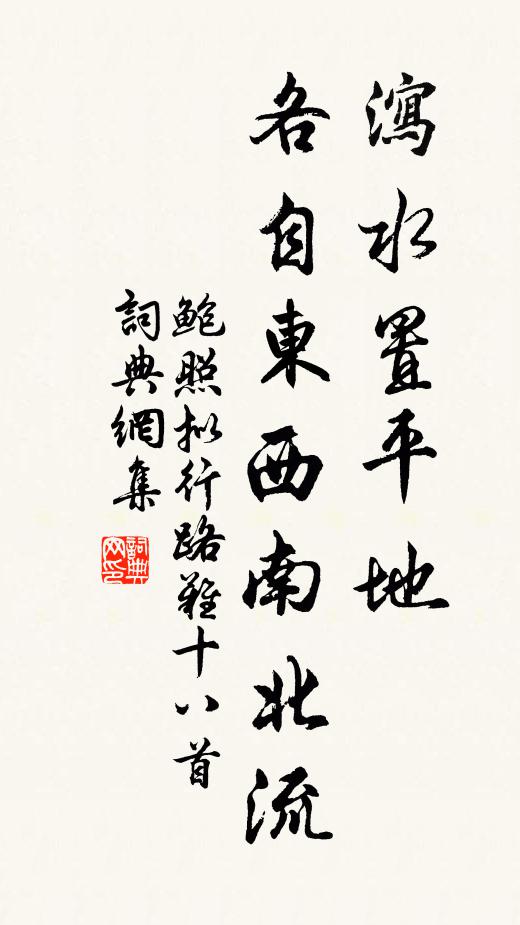 瀉水置平地
各自東西南北流
鮑照擬行路難十八首
詞典網集
詞典網印